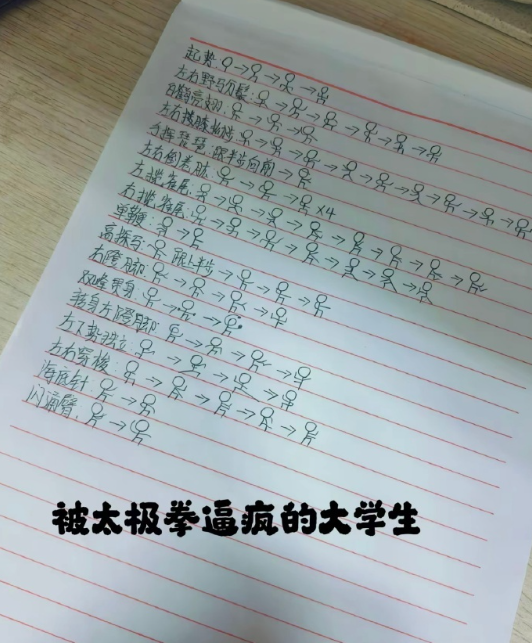 起势:
左右野马分鬃:
白鹤亮翅:
左右搂膝拗步:
手挥琵琶:跟半步向前
左右倒卷肱: ×4
左揽雀尾:
右揽雀尾:
单鞭:
高探马: 跟上半步
右蹬脚:
双峰贯耳:
转身左蹬脚:
左下势独立:
左右穿梭:
海底针:
闪通臂:
被太极拳逼疯的大学生